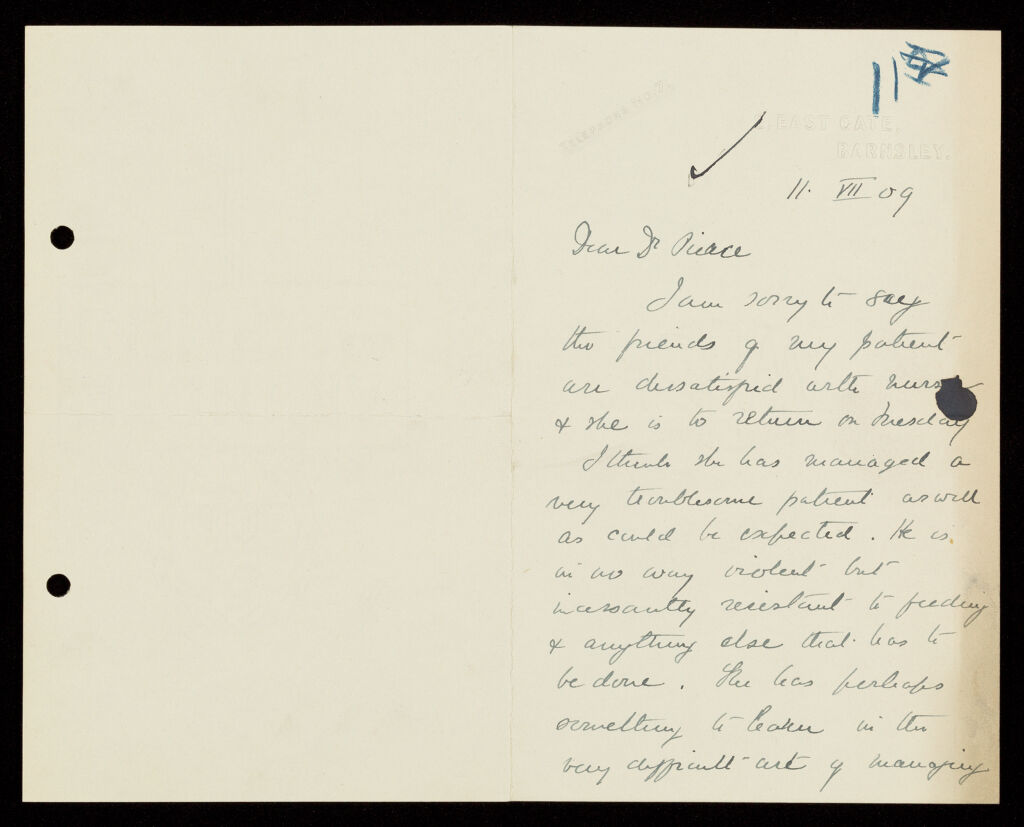 11
TELEPHONE NO. 7.
EAST GATE,
BARNSLEY.
11. VII 09
Dear Dr Pierce
I am sorry to say
the friends of my patient
are dissatisfied with nurse
& she is to return on Tuesday
I think she has managed a
very troublesome patient as well
as could be expected. He is
in no way violent but
incessantly resistant to feeding
& anything else that has to
be done. She has perhaps
something to learn in the
very difficult art of managing